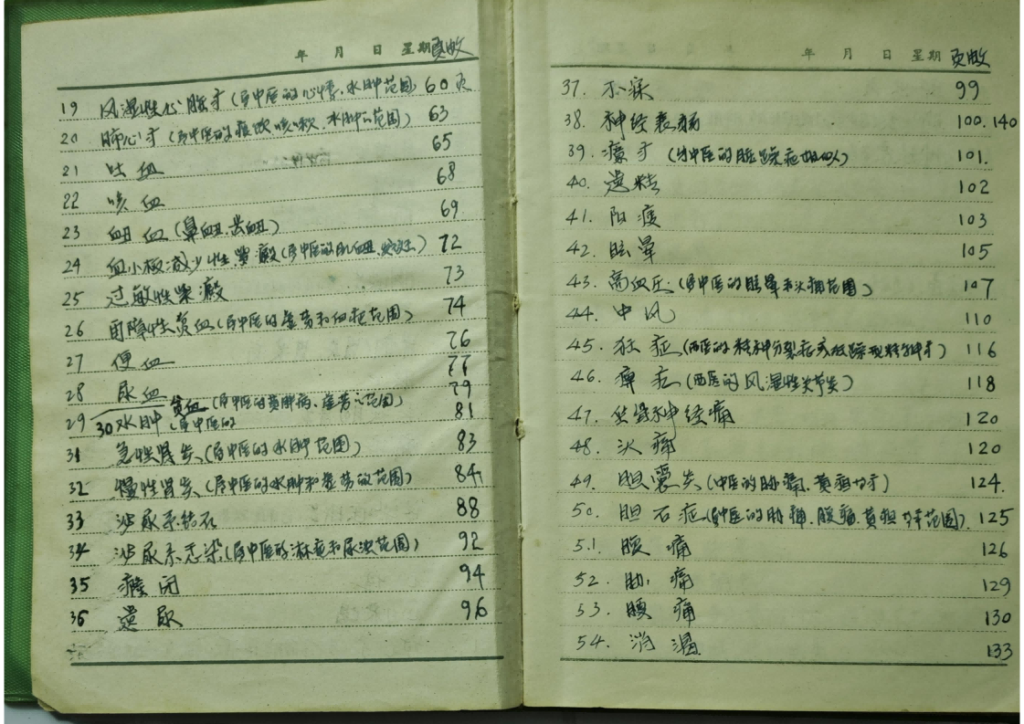 年 月 日 星期 页数
19 风湿性心脏病(属中医的心悸、水肿范围) 60页
20 肺心病(属中医的痰饮咳喘、水肿的范围) 63
21 吐血 65
22 咳血 68
23 衄血(鼻衄、齿衄) 69
24 血小板减少性紫癜(属中医的肌衄、发斑) 72
25 过敏性紫癜 73
26 再障性贫血(属中医的虚劳和血症范围) 74
27 便血 76
28 尿血 77
29 贫血(属中医的黄肿病、虚劳之范围) 79
30 水肿(属中医的 81
31 急性肾炎(属中医的水肿范围) 83
32 慢性肾炎(属中医的水肿和虚劳的范围) 84
33 泌尿系结石 88
34 泌尿系感染(属中医的淋症和尿浊范围) 92
35 癃闭 94
36 遗尿 96
年 月 日 星期 页数
37. 不寐 99
38. 神经衰弱 100.140
39. 癔病(与中医的脏躁症相似) 101.
40. 遗精 102
41. 阳痿 103
42. 眩晕 105
43. 高血压(属中医的眩晕和头痛范围) 107
44. 中风 110
45. 狂症(西医的精神分裂症或狂躁型精神病) 116
46. 痹症(西医的风湿性关节炎) 118
47. 坐骨神经痛 120
48. 头痛 120
49. 胆囊炎(中医的胁痛、黄疸) 124.
50. 胆石症(属中医的胁痛、腹痛、黄疸等范围). 125
51. 腹痛 126
52. 胁痛 129
53. 腰痛 130
54. 消渴 133